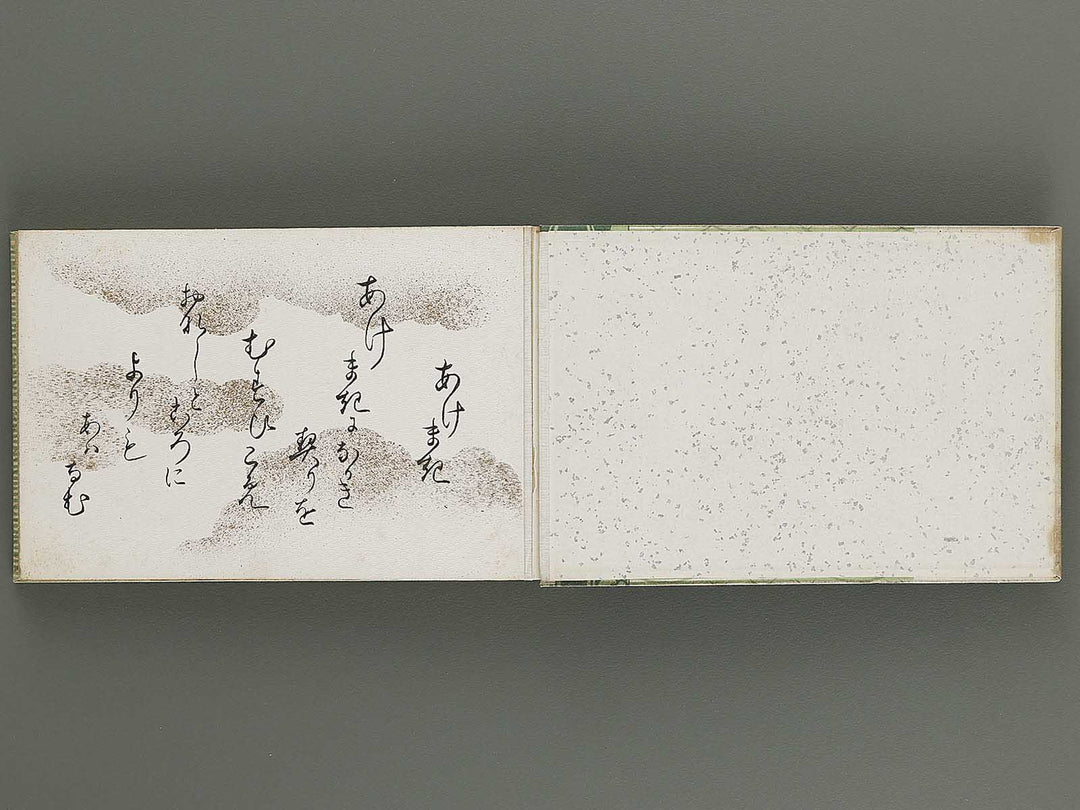 あけまき
あけ
まきになかき
契りを
むすひこめ
おなしところに
よりも
あハ
なむ